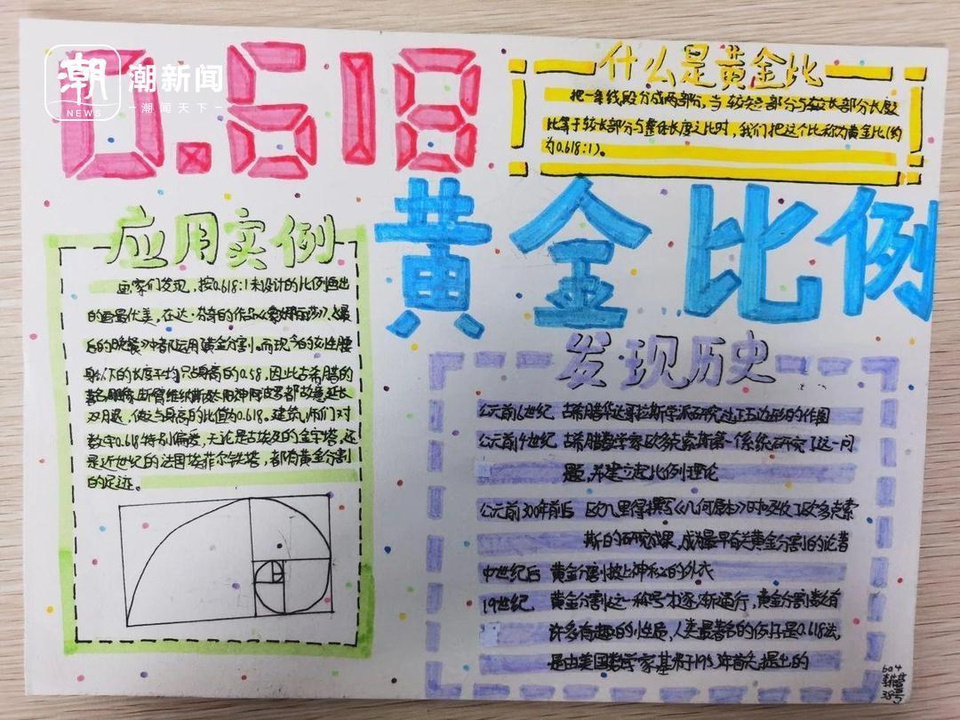 潮
NEWS
潮新闻
潮闻天下
0.618
什么是黄金比
把一条线段分成两部分，当较短部分与较长部分长度
比等于较长部分与整体长度之比时，我们把这个比称为黄金比(约
为0.618:1)。
黄金比例
应用实例
画家们发现，按0.618:1来设计的比例画出
的画最优美，在达·芬奇的作品《蒙娜丽莎》、《最
后的晚餐》中都运用黄金分割。而现今的女性腰
身以下的长度平均只占身高的0.58，因此古希腊的
都故意延长
双腿，使之与身高的比值为0.618。建筑师们对
数字0.618特别偏爱，无论是古埃及的金字塔，还
是近世纪的法国埃菲尔铁塔，都有黄金分割
的足迹。
发现历史
公元前6世纪 古希腊华达哥拉斯学派研究过正五边形的作图
公元前4世纪 古希腊数学家欧多克索斯第一系统研究了这一问
题，并建立起比例理论
公元前300年前后 欧几里得撰写《几何原本》时吸收了欧多克索
斯的研究成果，成为最早有关黄金分割的论著
中世纪后 黄金分割披上神秘的外衣
19世纪 黄金分割这一称号才逐渐通行，黄金分割数有
许多有趣的性质，人类最著名的例子是0.618法，
是由美国数学家基弗于1953年首先提出的
604
38号